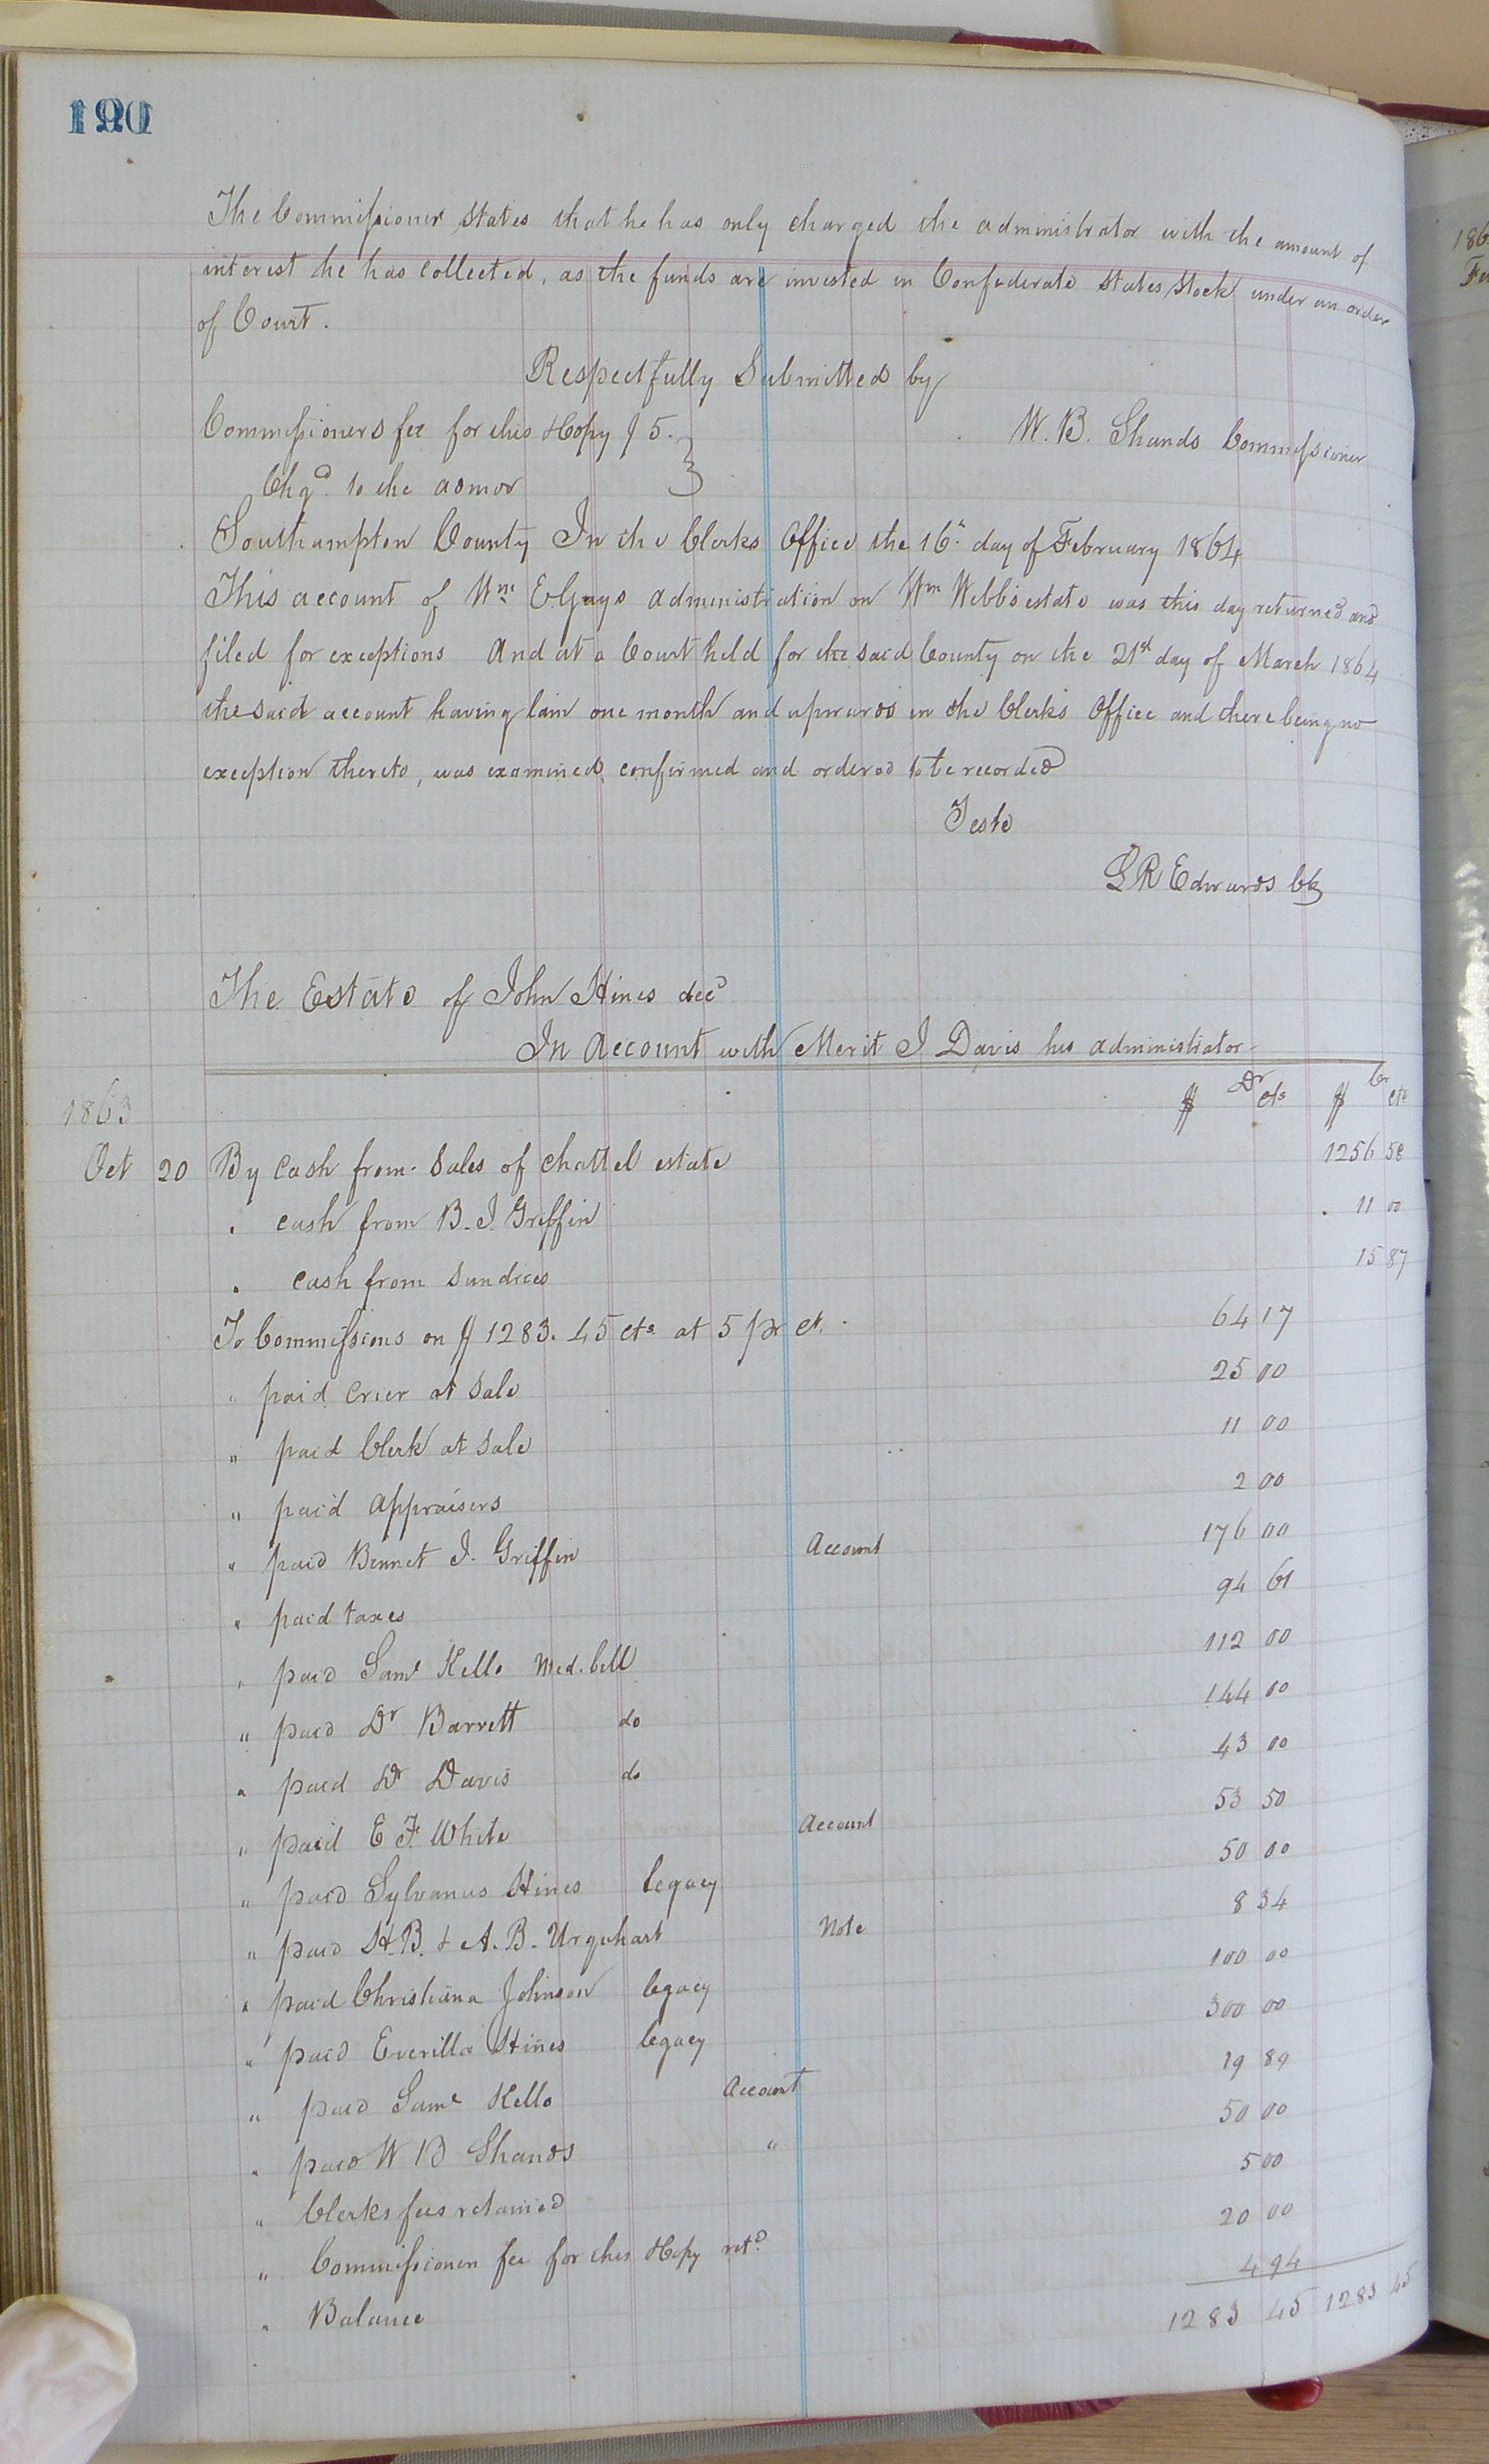 The Commissioner states that he has only charged the administrator with the amount of
interest he has collected, as the funds are invested in Confederate States Stock under an order
of Court.
Respectfully Submitted by
Commissioners fee for this & Copy $5. }
W. B. Shands Commissioner
Chgd. to the admor
Southampton County In the Clerks Office the 16th day of February 1864
This account of Wm E Grays administration on Wm Webbs estate was this day returned and
filed for exceptions And at a Court held for the said County on the 21st day of March 1864
the said account having lain one month and upwards in the Clerks Office and there being no
exception thereto, was examined, confirmed and ordered to be recorded
Teste
L R Edwards Clk
The Estate of John Hines decd
In Account with Merit J Davis his administrator
$ Dr cts $ Cr cts
1863
Oct 20 By Cash from Sales of chattel estate 1256 58
" cash from B. J. Griffin 11 00
" cash from Sundries 15 87
To Commissions on $1283.45 cts at 5 pr ct. 64 17
" paid Crier at Sale 25 00
" paid Clerk at Sale 11 00
" paid Appraisers 2 00
" paid Bennet J. Griffin Account 176 00
" paid taxes 94 61
" paid Saml Kello Med. bill 112 00
" paid Dr Barrett do 144 00
" paid Dr Davis do 43 00
" paid E F White Account 53 50
" paid Sylvanus Hines legacy 50 00
" paid H. B. & A. B. Urquhart Note 8 34
" paid Christiana Johnson legacy 100 00
" paid Everilla Hines legacy 300 00
" paid Saml Kello Account 19 89
" paid W B Shands " 50 00
" Clerks fees retained 5 00
" Commissioners fee for this & Copy retd 20 00
" Balance 4 94
1283 45 1283 45